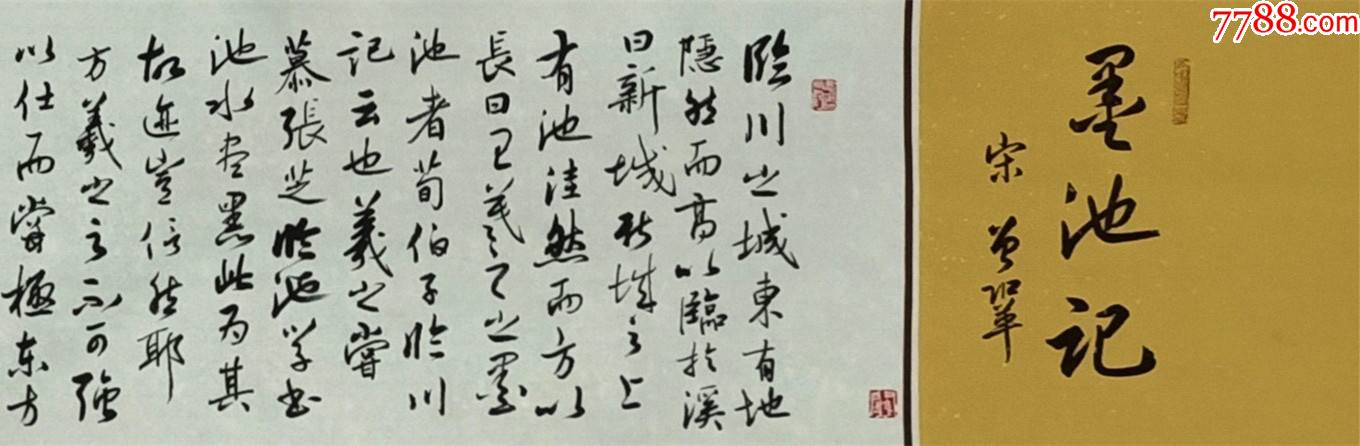 7788.com
墨池記
宋 曾鞏
臨川之城東有地
隱然而高以臨於溪
曰新城新城之上
有池洼然而方以
長曰王羲之之墨
池者荀伯子臨川
記云也羲之嘗
慕張芝臨池學書
池水盡黑此為其
故迹豈信然耶
方羲之之不可強
以仕而嘗極東方